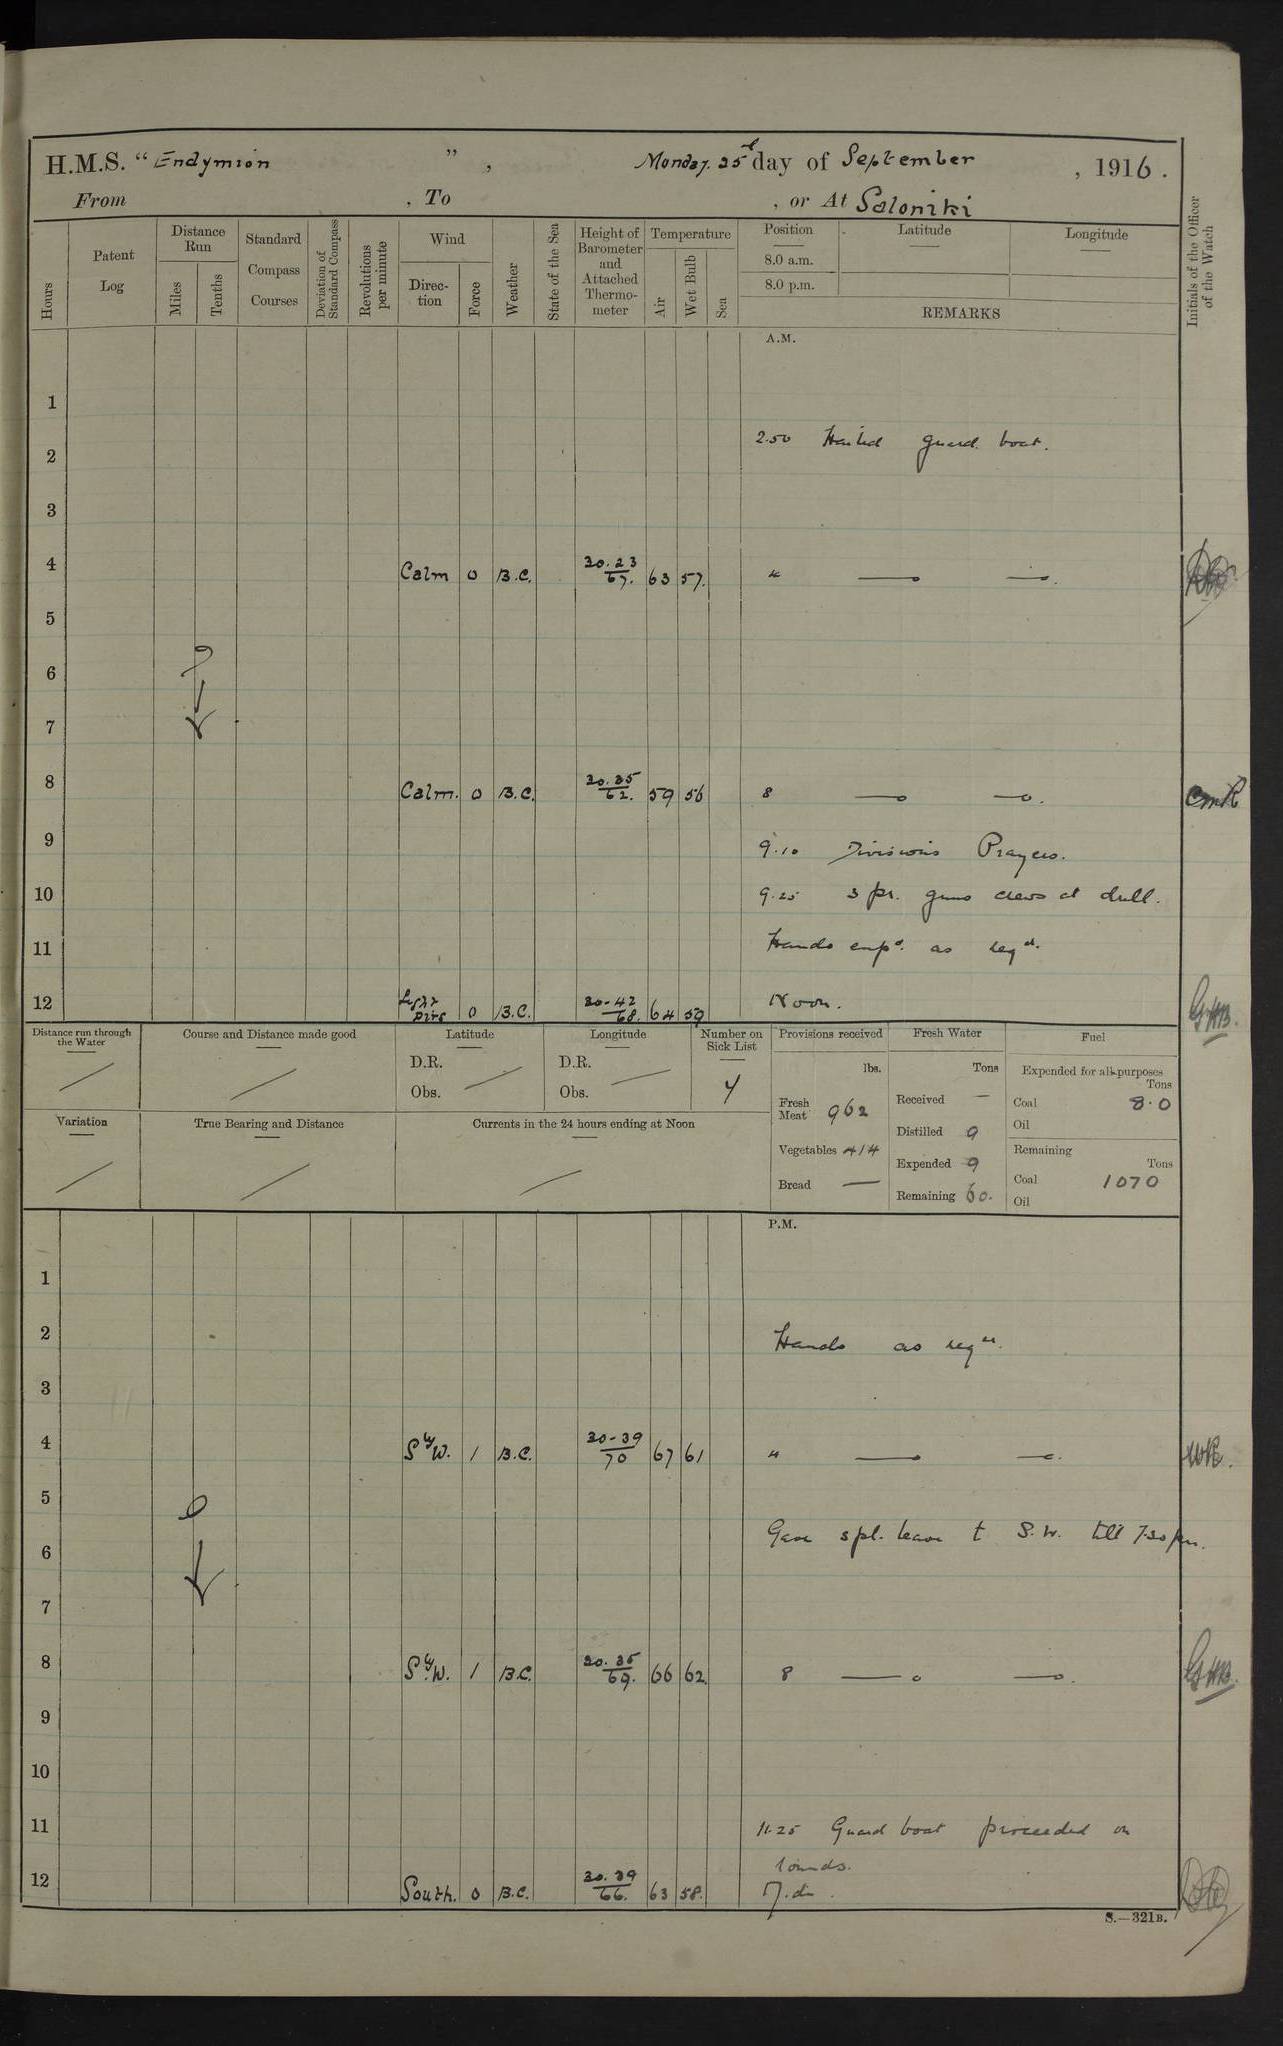 H.M.S. "Endymion", Monday. 25 day of September, 1916.
From , To , or At Saloniki
Hours
Patent Log
Distance Run
Miles
Tenths
Standard Compass Courses
Deviation of Standard Compass
Revolutions per minute
Wind
Direc-tion
Force
Weather
State of the Sea
Height of Barometer and Attached Thermo-meter
Temperature
Air
Wet Bulb
Sea
Position
Latitude
Longitude
8.0 a.m.
8.0 p.m.
REMARKS
Initials of the Officer of the Watch
A.M.
1
2.50 Hailed guard boat.
2
3
4 Calm 0 B.C. 30.23/67. 63 57. 4
5
6
7
8 Calm. 0 B.C. 30.35/62. 59 56 8
9 9.10 Divisions Prayers.
10 9.25 3 pr. guns crews at drill.
11 Hands empd. as reqd.
12 Light airs 0 B.C. 30.42/68. 64 59 Noon.
Distance run through the Water
Course and Distance made good
Latitude
D.R.
Obs.
Longitude
D.R.
Obs.
Number on Sick List
4
Provisions received
lbs.
Fresh Meat 962
Vegetables 414
Bread —
Fresh Water
Tons
Received —
Distilled 9
Expended 9
Remaining 60.
Fuel
Expended for all purposes
Tons
Coal 8.0
Oil
Remaining
Tons
Coal 1070
Oil
Variation
True Bearing and Distance
Currents in the 24 hours ending at Noon
P.M.
1
2 Hands as reqd.
3
4 S by W. 1 B.C. 30.39/70 67 61 4
5
Gave spl. leave t S.W. till 7.30 pm.
6
7
8 S by W. 1 B.C. 30.35/69. 66 62. 8
9
10
11 11.25 Guard boat proceeded on
rounds.
12 South. 0 B.C. 30.39/66. 63 58.
S.—321B.